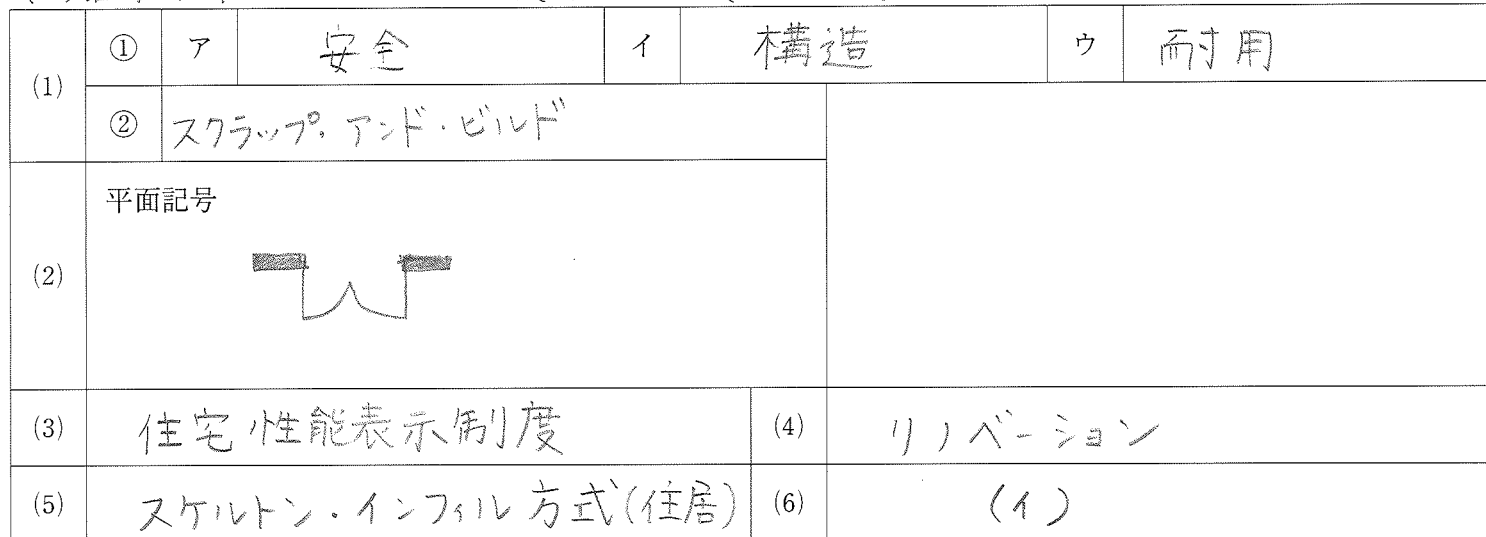 (1) ① ア 安全 イ 構造 ウ 耐用
② スクラップ・アンド・ビルド
(2) 平面記号
(3) 住宅性能表示制度 (4) リノベーション
(5) スケルトン・インフィル方式(住居) (6) (イ)